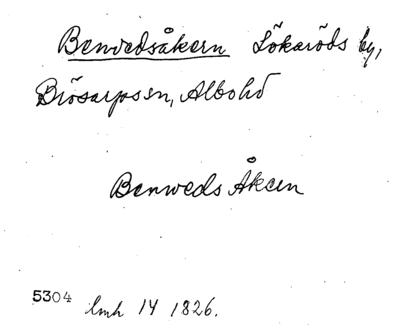 Benvedsåkern Lökaröds by,
Brösarps sn, Albo hd
Benweds Åkern
5304 lmh 14 1826.